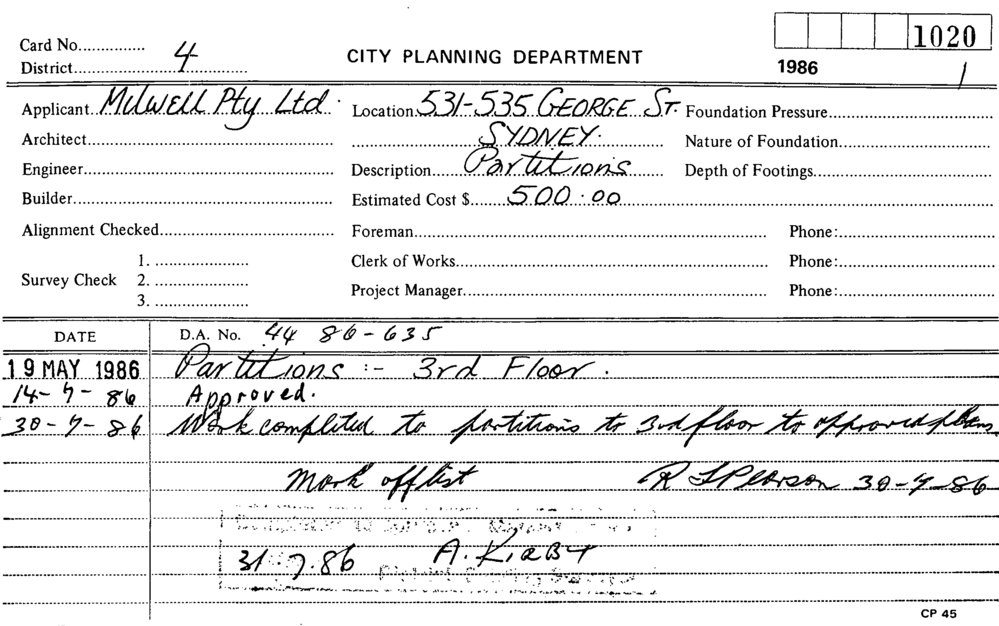 Card No............... 1020
District 4 CITY PLANNING DEPARTMENT 1986 1
Applicant Milwell Pty Ltd. Location 531-535 GEORGE ST. Foundation Pressure
Architect SYDNEY. Nature of Foundation
Engineer Description Partitions Depth of Footings
Builder Estimated Cost $ 500.00
Alignment Checked Foreman Phone:
1. Clerk of Works Phone:
Survey Check 2.
3. Project Manager Phone:
DATE D.A. No. 44 86-635
19 MAY 1986 Partitions :- 3rd Floor.
14-7-86 Approved.
30-7-86 Work completed to partitions to 3rd floor to approved plans
Mark off list R L Pearson 30-7-86
31.7.86 A. KIRBY
CP 45